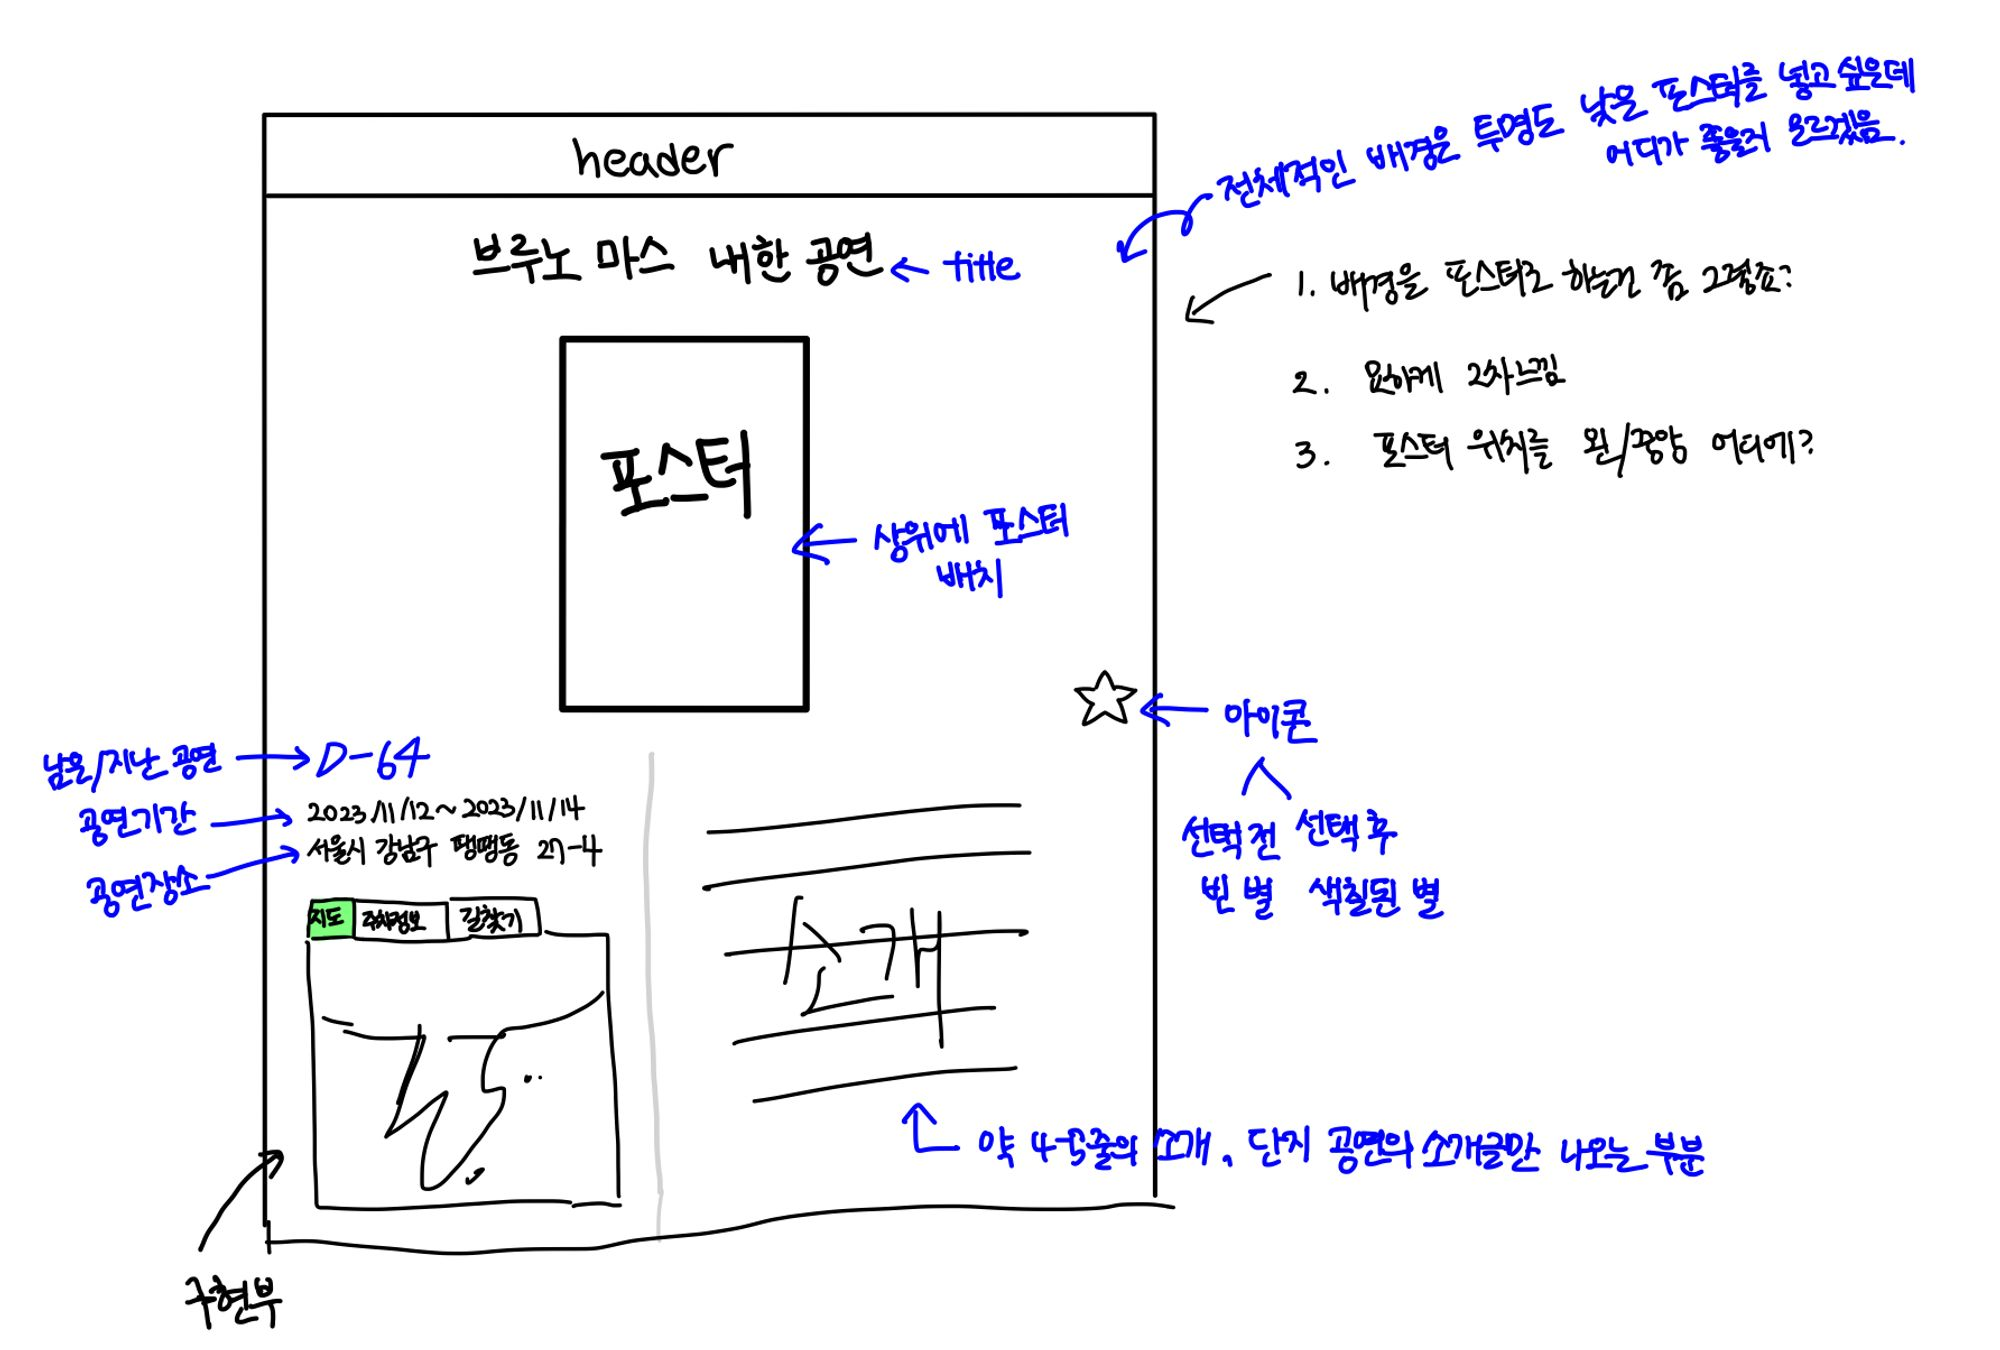 header
전체적인 배경은 투명도 낮은 포스터를 넣고 싶은데
어디가 좋을지 모르겠음.
브루노 마스 내한 공연
title
1. 배경을 포스터로 하는건 좀 그렇죠?
2. 묘하게 2차느낌
3. 포스터 위치를 왼/중앙 어디에?
포스터
상위에 포스터
배치
아이콘
선택 전 선택 후
빈 별 색칠된 별
남은/지난 공연
D-64
공연기간
2023/11/12~2023/11/14
공연장소
서울시 강남구 땡땡동 27-4
지도 주차정보 길찾기
소개
약 4-5줄의 소개, 단지 공연의 소개글만 나오는 부분
구현부